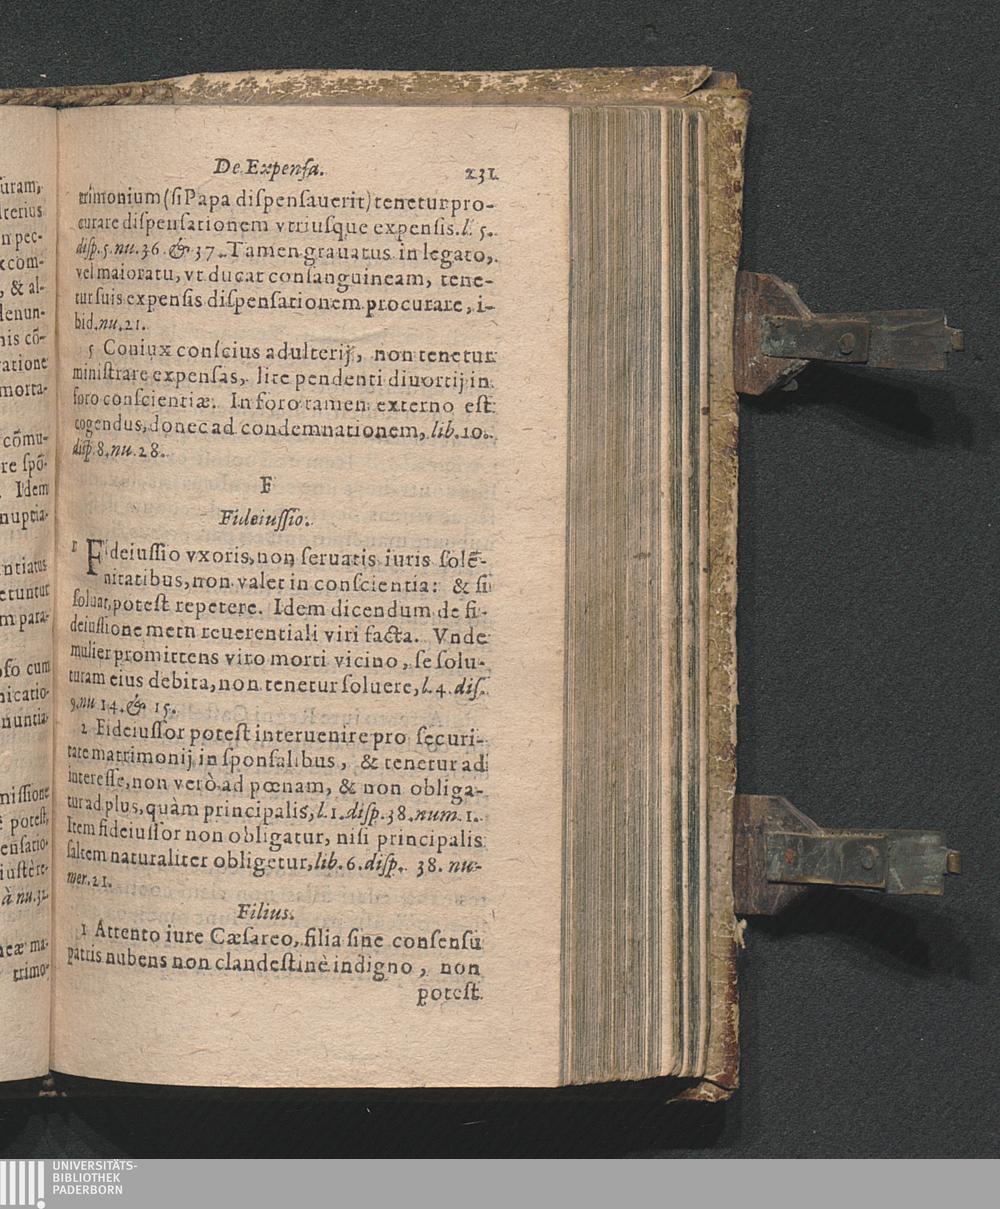 ſuram,
lterius
n pec-
xcom-
, & al-
denun-
nis cõ-
ratione
morta-
cõmu-
re ſpõ-
. Idem
nuptia-
ntiatus
etuntur
m para-
oſo cum
nicatio-
nuntia-
miſſione
poteſt,
enſatio-
iuſtè re-
à nu. 32.
neæ ma-
trimo-
De Expenſa. 231
trimonium (ſi Papa diſpenſauerit) tenetur pro-
curare diſpenſationem vtriuſque expenſis. l. 5.
diſp. 5. nu. 36 & 37. Tamen grauatus in legato,
vel maioratu, vt ducat conſanguineam, tene-
tur ſuis expenſis diſpenſationem procurare, i-
bid. nu. 21.
5 Coniux conſcius adulterij, non tenetur
miniſtrare expenſas, lite pendenti diuortij in
foro conſcientiæ. In foro tamen externo eſt
cogendus, donec ad condemnationem, lib. 10.
diſp. 8. nu. 28.
F
Fideiuſſio.
1 Fideiuſſio vxoris, non ſeruatis iuris ſolẽ-
nitatibus, non valet in conſcientia: & ſi
ſoluat, poteſt repetere. Idem dicendum de fi-
deiuſſione metu reuerentiali viri facta. Vnde
mulier promittens viro morti vicino, ſe ſolu-
turam eius debita, non tenetur ſoluere, l. 4. diſ.
9. nu 14. & 15.
2 Fideiuſſor poteſt interuenire pro ſecuri-
tate matrimonij in ſponſalibus, & tenetur ad
intereſſe, non verò ad pœnam, & non obliga-
tur ad plus, quàm principalis, l. 1. diſp. 38. num. 1.
Item fideiuſſor non obligatur, niſi principalis
ſaltem naturaliter obligetur, lib. 6. diſp. 38. nu-
mer. 21.
Filius.
1 Attento iure Cæſareo, filia ſine conſenſu
patris nubens non clandeſtinè indigno, non
poteſt
UNIVERSITÄTS-
BIBLIOTHEK
PADERBORN